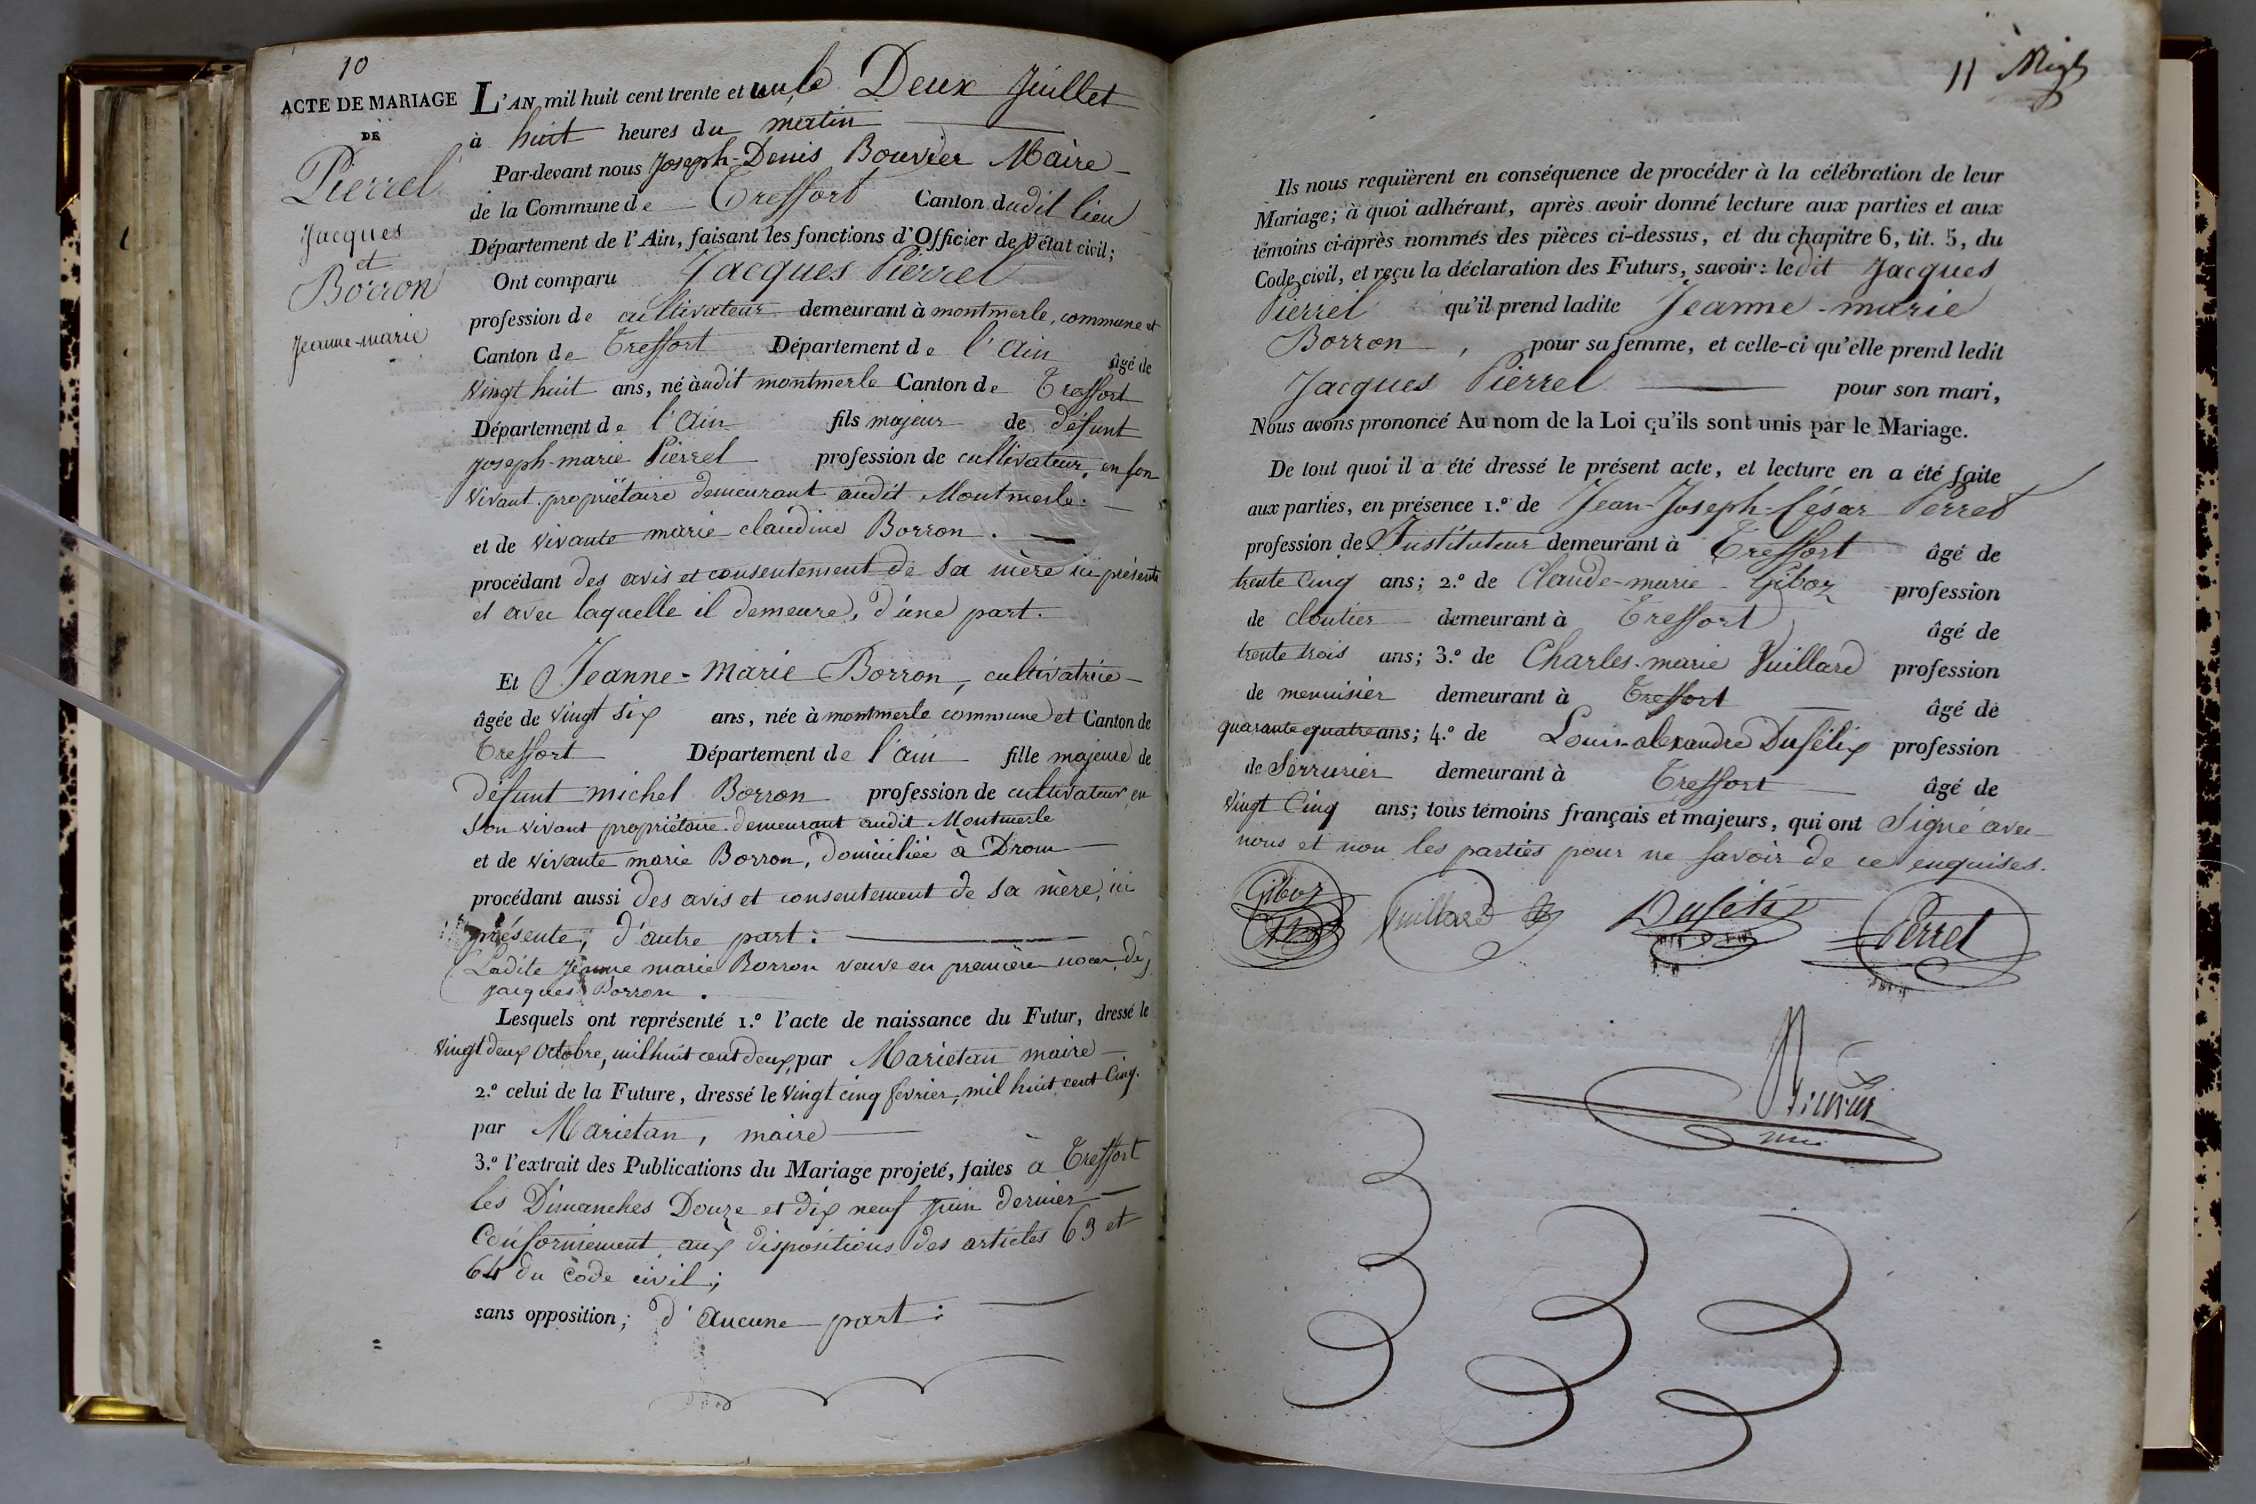 10
ACTE DE MARIAGE
DE
Pierrel
Jacques
et
Borron
Jeanne-marie
L'AN mil huit cent trente et un, le Deux Juillet
à huit heures du matin
Par-devant nous Joseph-Denis Bouvier Maire
de la Commune de Treffort Canton dudit lieu
Département de l'Ain, faisant les fonctions d'Officier de l'état civil;
Ont comparu Jacques Pierrel
profession de cultivateur demeurant à montmerle, commune et
Canton de Treffort Département de l'Ain âgé de
vingt huit ans, né àudit montmerle Canton de Treffort
Département de l'Ain fils majeur de défunt
joseph-marie Pierrel profession de cultivateur, en son
vivant propriétaire demeurant audit Montmerle.
et de vivante marie claudine Borron.
procédant des avis et consentement de sa mère ici présente
et avec laquelle il demeure, d'une part.
Et Jeanne-Marie Borron, cultivatrice
âgée de vingt six ans, née à montmerle commune et Canton de
Treffort Département de l'ain fille majeure de
défunt michel Borron profession de cultivateur en
son vivant propriétaire demeurant audit Montmerle
et de vivante marie Borron, domiciliée à Drom
procédant aussi des avis et consentement de sa mère, ici
présente, d'autre part:
Ladite jeanne marie Borron veuve en première noces de
jacques Borron.
Lesquels ont représenté 1.º l'acte de naissance du Futur, dressé le
vingt deux octobre, mil huit cent deux, par Marietan maire
2.º celui de la Future, dressé le vingt cinq février, mil huit cent cinq.
par Marietan, maire
3.º l'extrait des Publications du Mariage projeté, faites à Treffort
les Dimanches Douze et dix neuf juin dernier
Conformément aux dispositions des articles 63 et
64 du Code civil;
sans opposition; d'aucune part:
11
Ils nous requièrent en conséquence de procéder à la célébration de leur
Mariage; à quoi adhérant, après avoir donné lecture aux parties et aux
témoins ci-après nommés des pièces ci-dessus, et du chapitre 6, tit. 5, du
Code civil, et reçu la déclaration des Futurs, savoir: ledit Jacques
Pierrel qu'il prend ladite Jeanne-marie
Borron, pour sa femme, et celle-ci qu'elle prend ledit
Jacques Pierrel pour son mari,
Nous avons prononcé Au nom de la Loi qu'ils sont unis par le Mariage.
De tout quoi il a été dressé le présent acte, et lecture en a été faite
aux parties, en présence 1.º de Jean-Joseph-César Perret
profession de Instituteur demeurant à Treffort âgé de
trente cinq ans; 2.º de Claude-marie Giboz profession
de cloutier demeurant à Treffort âgé de
trente trois ans; 3.º de Charles-marie Vuillard profession
de menuisier demeurant à Treffort âgé de
quarante quatre ans; 4.º de Louis-alexandre Dufélix profession
de Serrurier demeurant à Treffort âgé de
vingt Cinq ans; tous témoins français et majeurs, qui ont signé avec
nous et non les parties pour ne savoir de ce enquises.
Giboz Vuillard Dufélix Perret